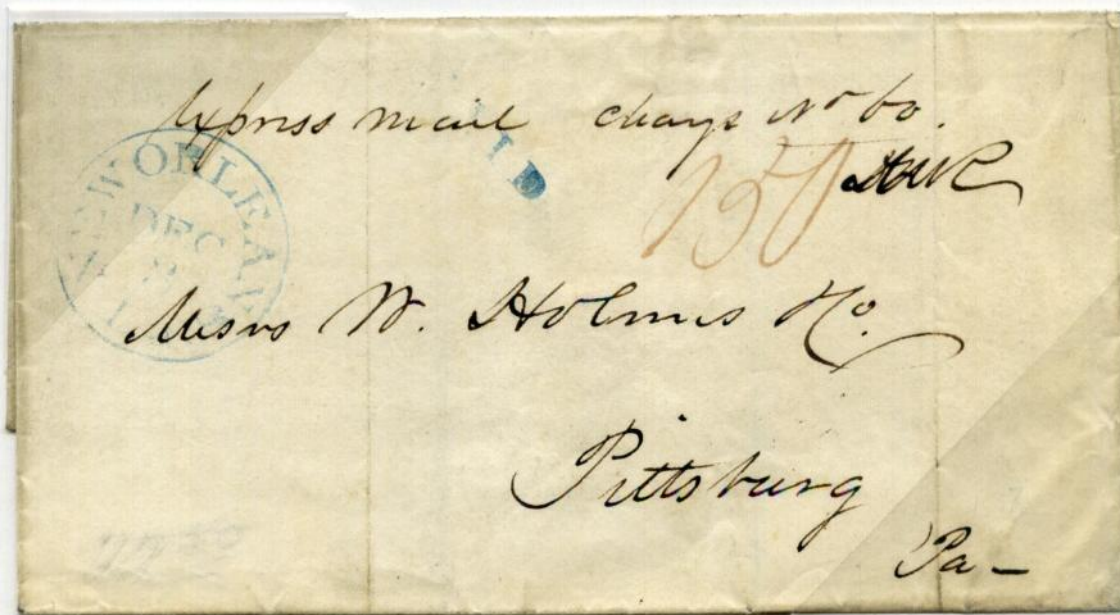 Express mail charge No 60.
150
NEW ORLEANS
DEC
Messrs W. Holmes & Co.
Pittsburg
Pa –